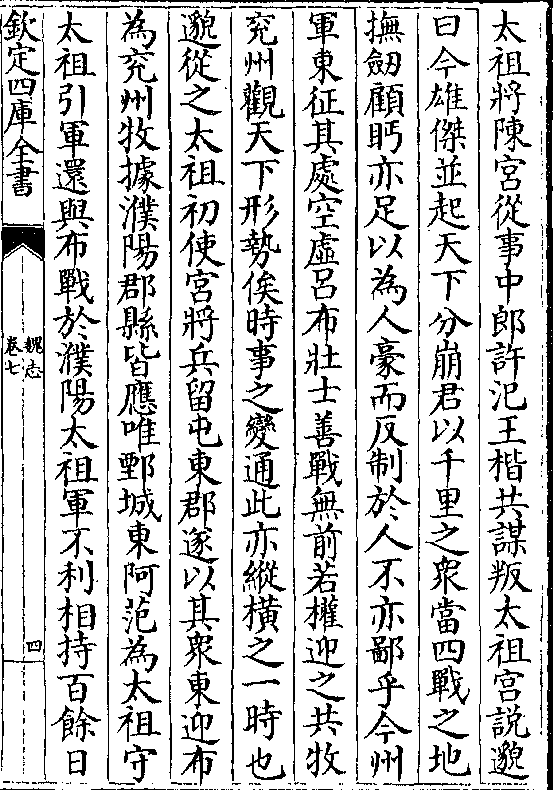 太祖將陳宮從事中郎許汜王楷共謀叛太祖宮說邈
曰今雄傑並起天下分崩君以千里之衆當四戰之地
撫劒顧眄亦足以為人豪而反制於人不亦鄙乎今州
軍東征其處空虛呂布壯士善戰無前若權迎之共牧
兖州觀天下形勢俟時事之變通此亦縱橫之一時也
邈從之太祖初使宮將兵留屯東郡遂以其衆東迎布
為兖州牧據濮陽郡縣皆應唯鄄城東阿范為太祖守
太祖引軍還與布戰於濮陽太祖軍不利相持百餘日
欽定四庫全書
魏志
卷七
四